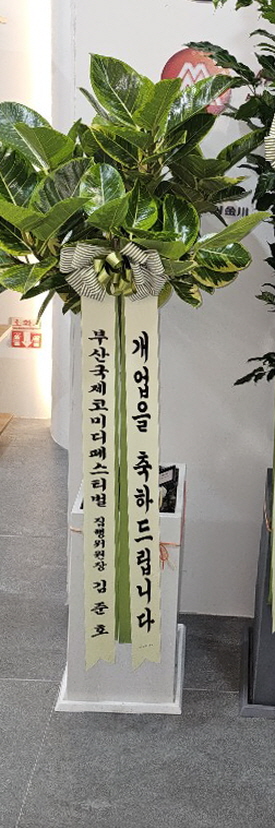 개업을 축하드립니다
부산국제코미디페스티벌 집행위원장 김준호
소화